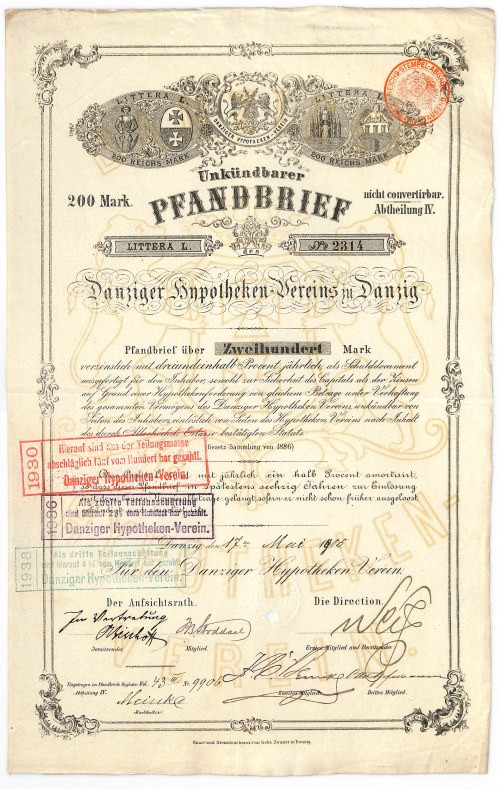 LITTERA L.
200 REICHS-MARK
DANZIGER HYPOTHEKEN-VEREIN
LITTERA L.
200 REICHS-MARK
Unkündbarer
200 Mark.
PFANDBRIEF
nicht convertirbar.
Abtheilung IV.
LITTERA L.
des
No 2314
Danziger Hypotheken-Vereins zu Danzig
Pfandbrief über Zweihundert Mark
verzinslich mit dreiundeinhalb Procent jährlich, als Schulddocument
ausgefertigt für den Inhaber, sowohl zur Sicherheit des Capitals als der Zinsen
auf Grund einer Hypothekenforderung von gleichem Betrage unter Verhaftung
des gesammten Vermögens des Danziger Hypotheken Vereins, unkündbar von
Seiten des Inhabers, einlöslich von Seiten des Hypotheken Vereins nach Inhalt
des durch Allerhöchste Erlasse bestätigten Statuts
(Gesetz-Sammlung von 1886)
mit jährlich ein halb Procent amortisirt,
so dass dieser Pfandbrief in spätestens sechzig Jahren zur Einlösung
gelangt, sofern er nicht schon früher ausgeloost
1930
Hierauf sind aus der Teilungsmasse
abschläglich fünf vom Hundert bar gezahlt.
Danziger Hypotheken-Verein.
1936
Als zweite Teilausschüttung
sind hierauf 2½ vom Hundert bar gezahlt
Danziger Hypotheken-Verein.
1938
Als dritte Teilausschüttung
sind hierauf 4½ vom Hundert bar gezahlt
Danziger Hypotheken-Verein.
Danzig den 17. Mai
Für den Danziger Hypotheken Verein.
Der Aufsichtsrath.
Die Direction.
In Vertretung
Vorsitzender
Mitglied.
Erstes Mitglied und Vorsitzender
Eingetragen im Pfandbriefs Register Vol. 43 No. 9906
Abtheilung IV.
Zweites Mitglied.
Drittes Mitglied.
Meinke
Buchhalter
Kunst und Steindruckerei von Gebr. Zeuner in Danzig.